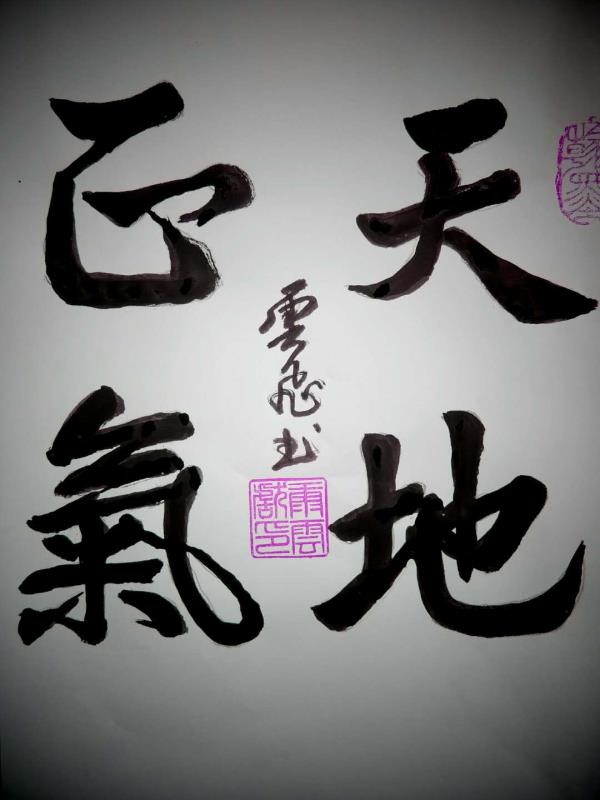 天地
正氣
雲飛书